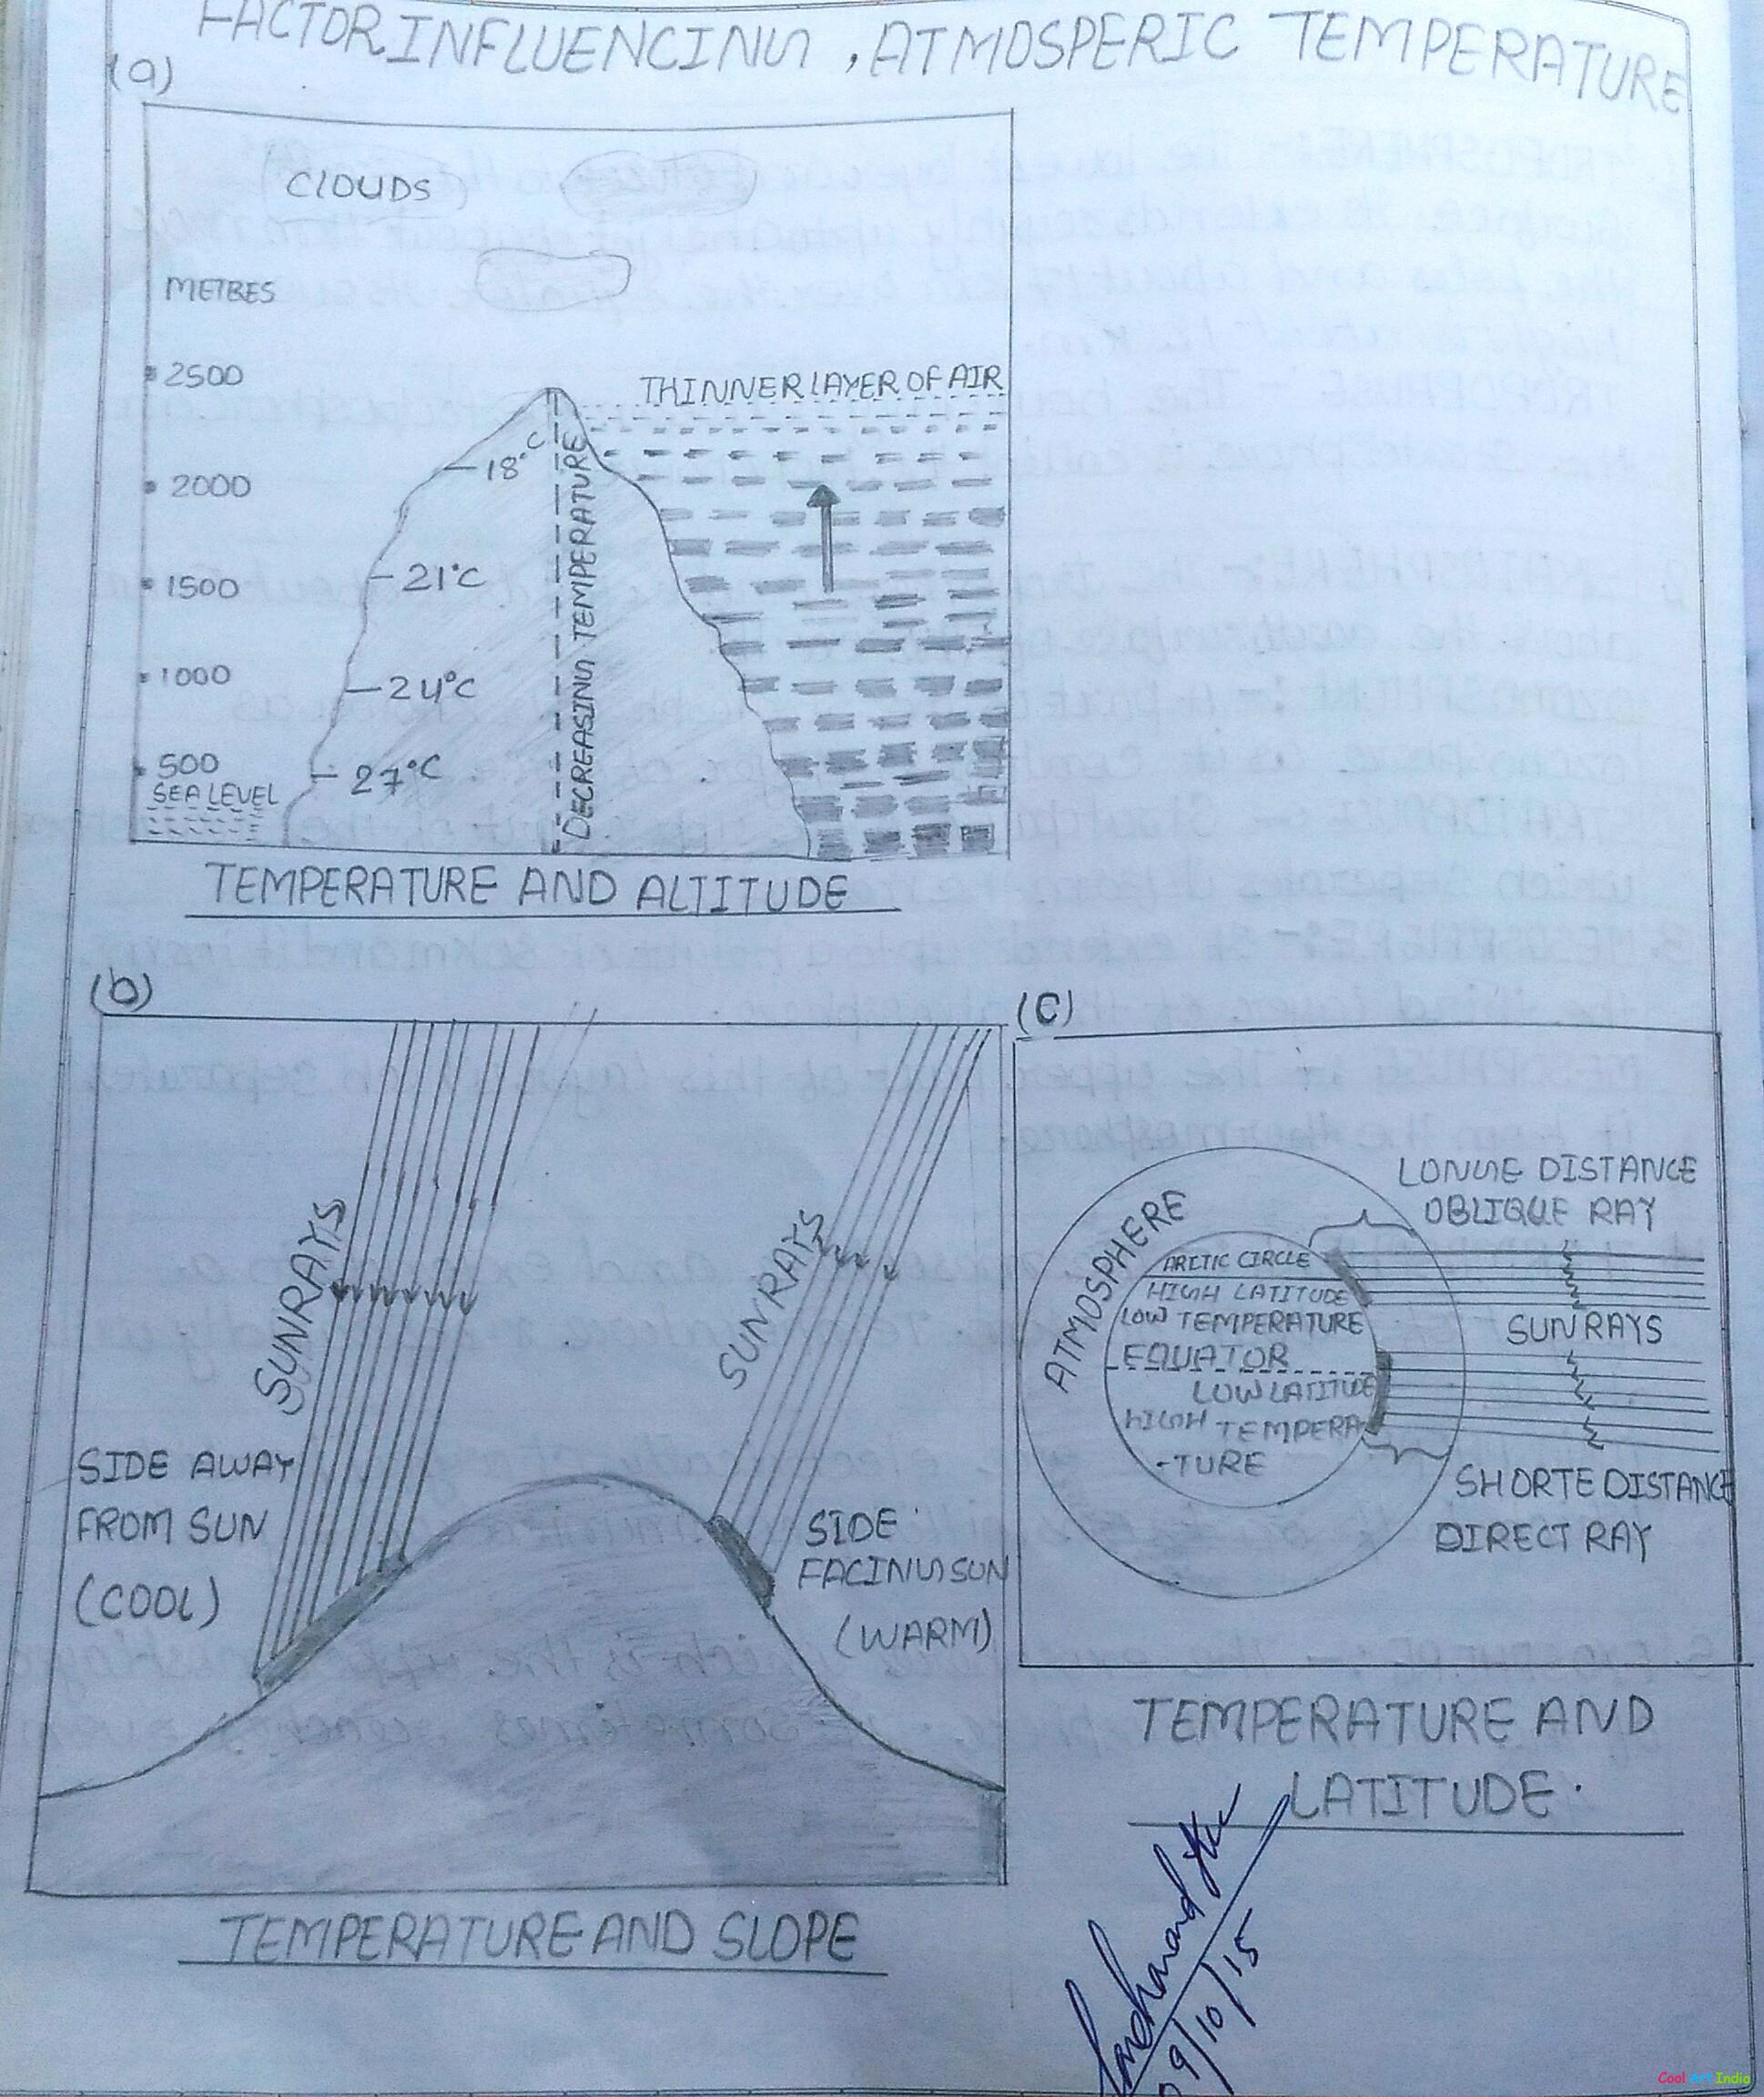 FACTOR INFLUENCING , ATMOSPERIC TEMPERATURE
(a)
CLOUDS
METRES
2500
THINNER LAYER OF AIR
18°C
2000
21°C
1500
24°C
1000
27°C
500
SEA LEVEL
DECREASING TEMPERATURE
TEMPERATURE AND ALTITUDE
(b)
SUNRAYS
SUNRAYS
SIDE AWAY
FROM SUN
(COOL)
SIDE
FACING SUN
(WARM)
TEMPERATURE AND SLOPE
(C)
ATMOSPHERE
LONGE DISTANCE
OBLIQUE RAY
ARCTIC CIRCLE
HIGH LATITUDE
LOW TEMPERATURE
EQUATOR
LOW LATITUDE
HIGH TEMPERA
-TURE
SUNRAYS
SHORTE DISTANCE
DIRECT RAY
TEMPERATURE AND
LATITUDE.
9/10/15
Cool Art India